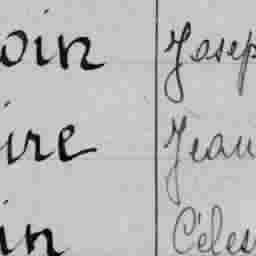 oin Josep
ire Jean
in Céles